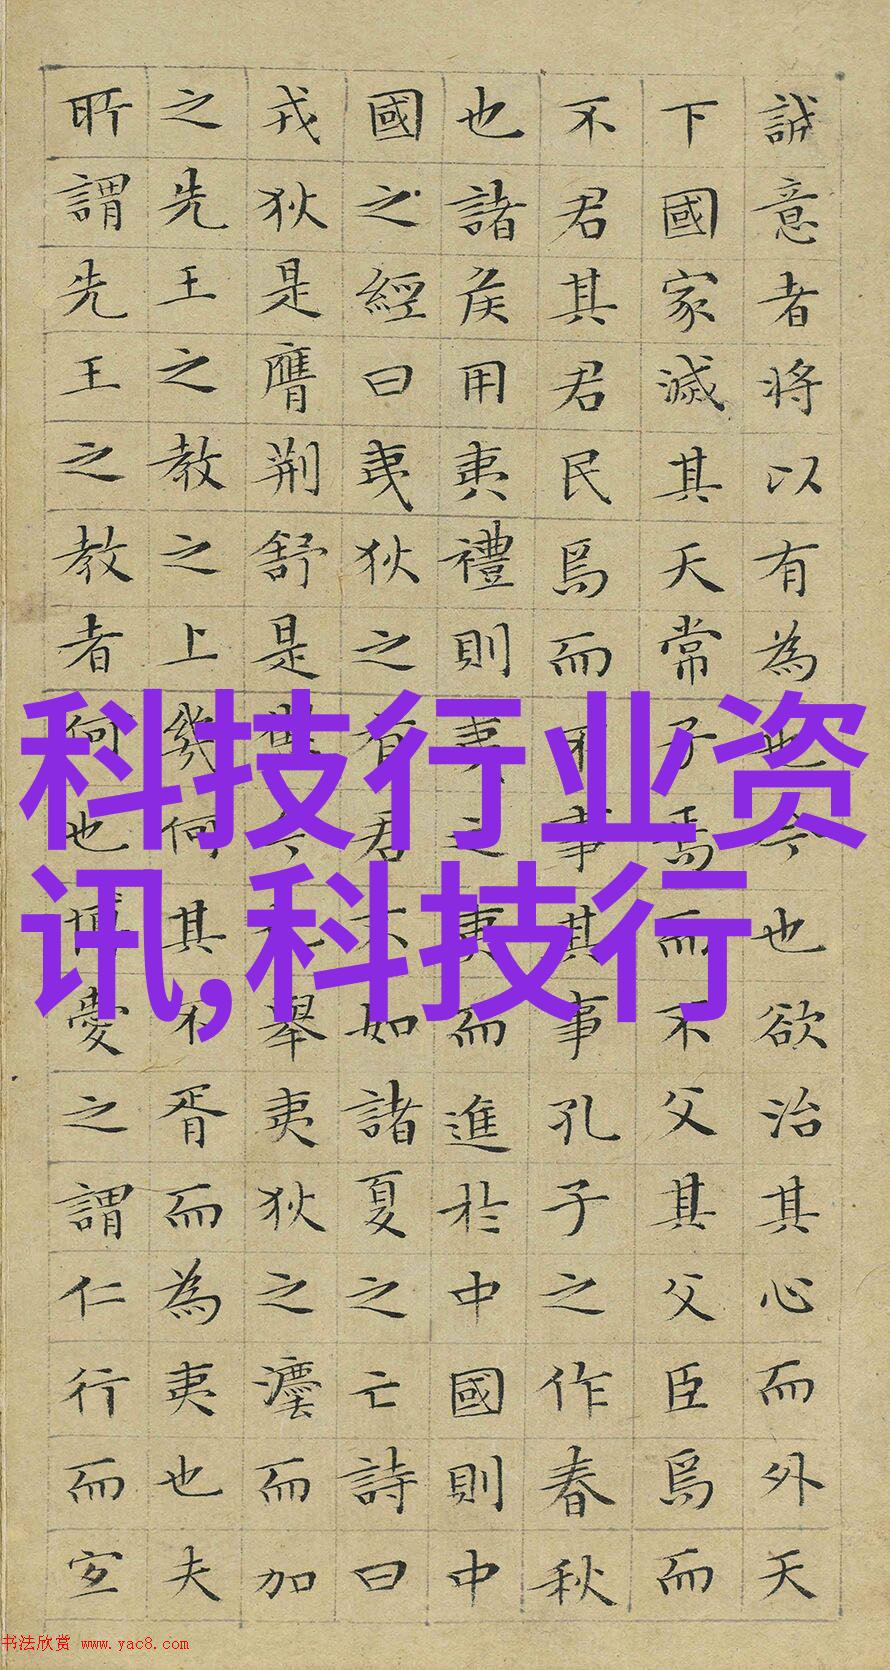 誠意者将以有為也今也欲治其心而外天
下國家滅其天常子焉而不父其父臣焉而
不君其君民焉而不事其事孔子之作春秋
也諸侯用夷禮則夷之夷而進於中國則中
國之經曰夷狄之有君不如諸夏之亡詩曰
戎狄是膺荆舒是懲今也舉夷狄之灋而加
之先王之教之上幾何其不胥而為夷也夫
所謂先王之教者何也博愛之謂仁行而宜
科技行业资
讯,科技行
书法欣赏 www.yac8.com